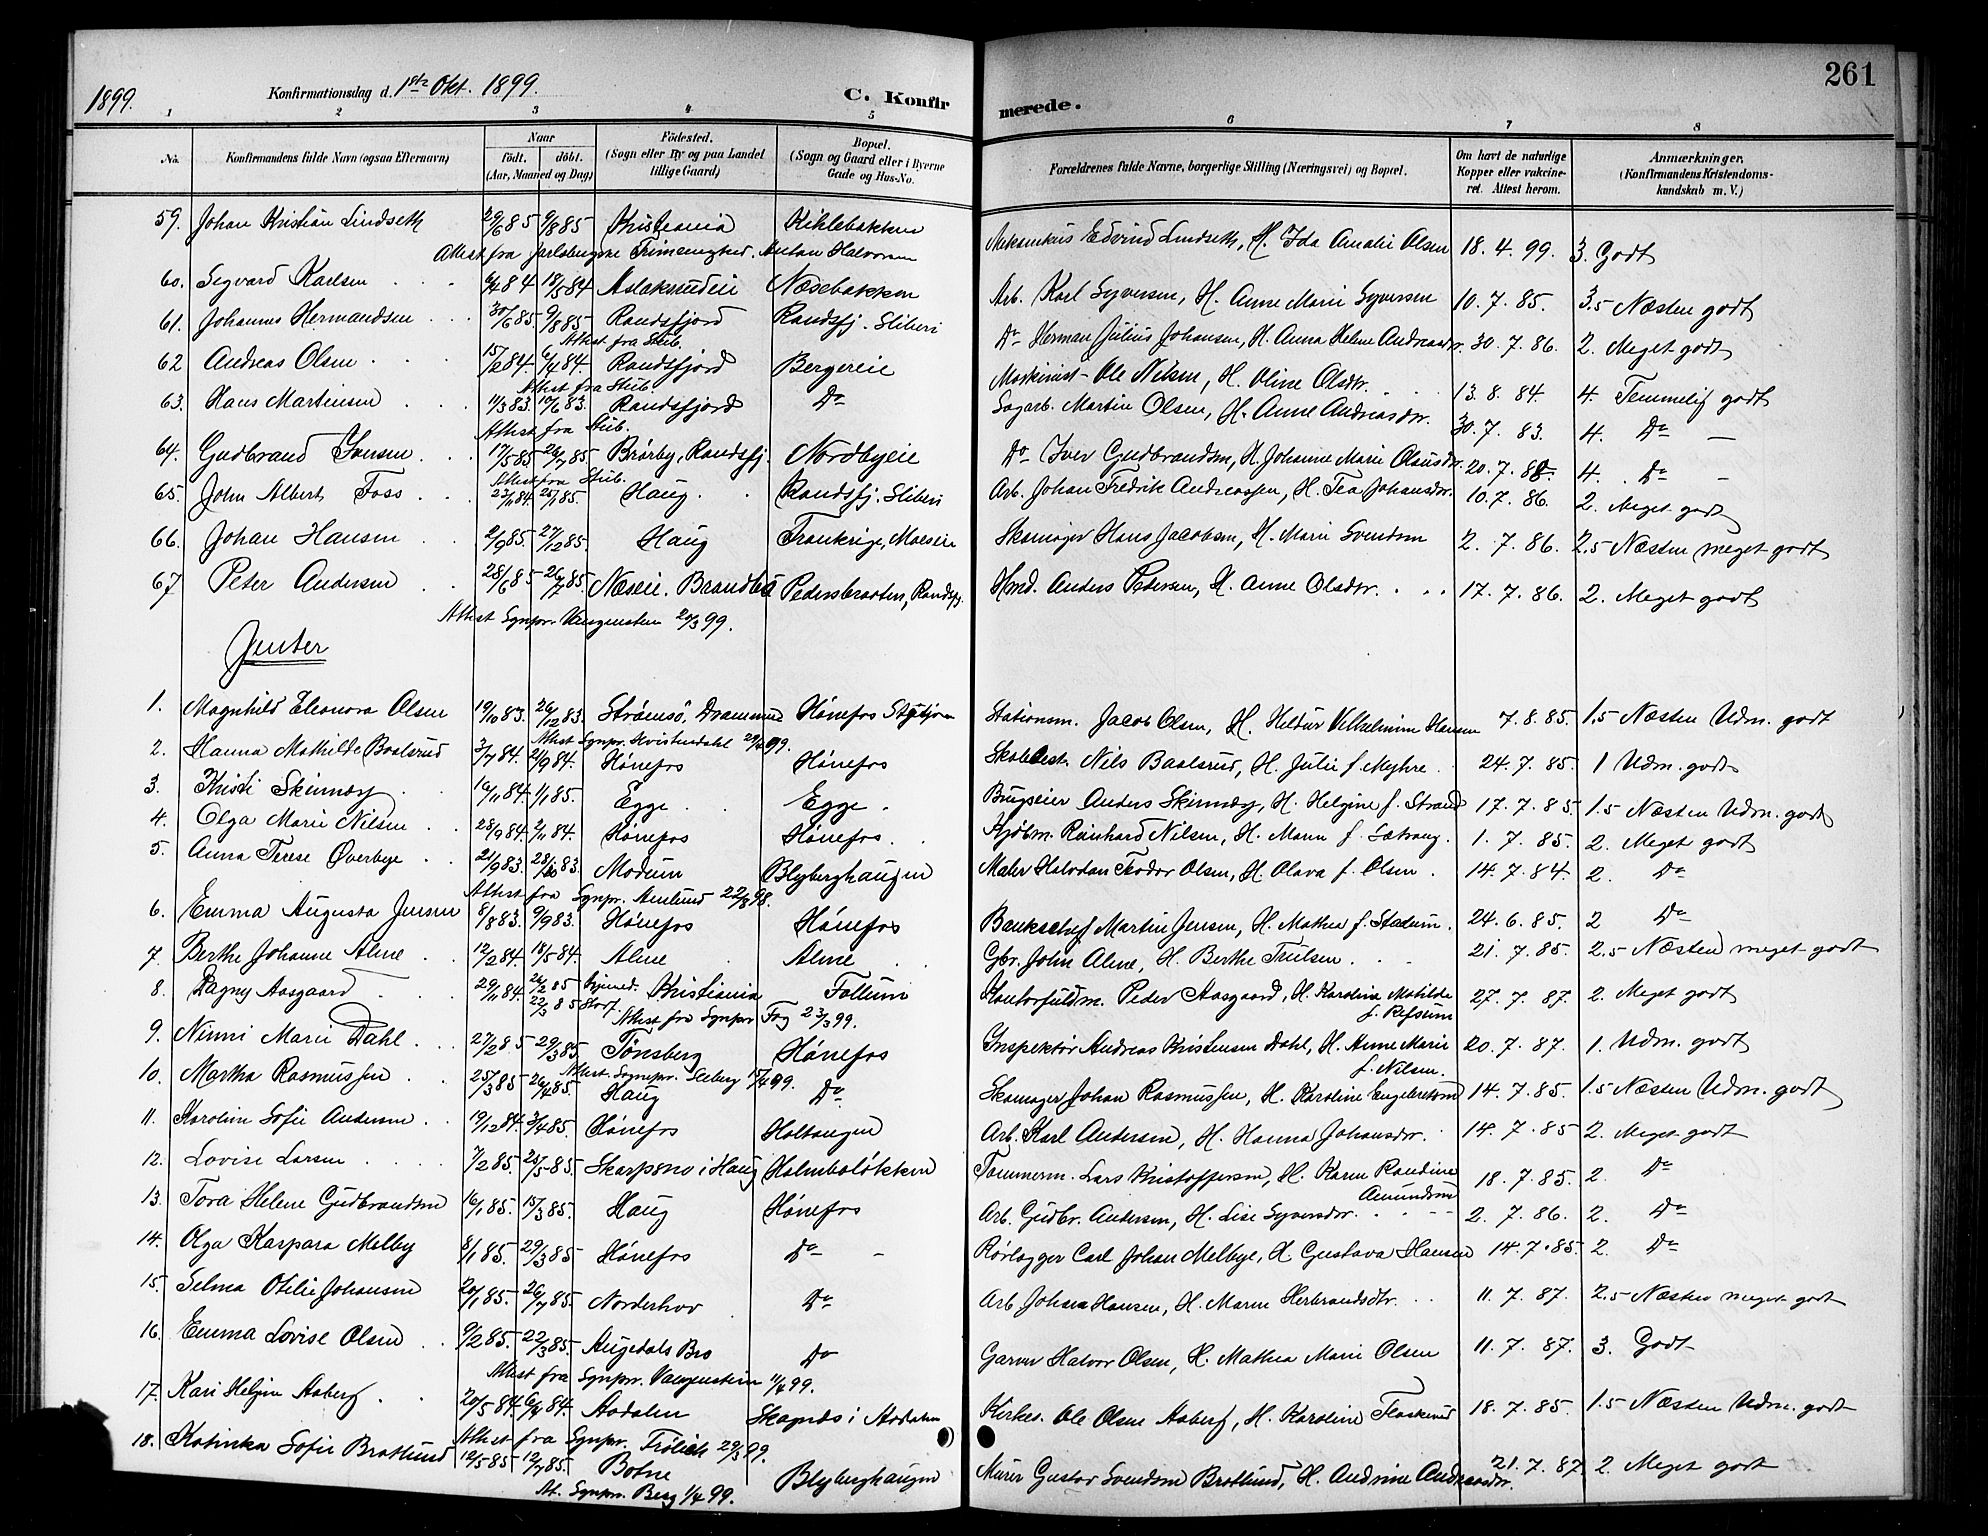 1899.
Konfirmationsdag d. 1ste Okt. 1899.
C. Konfirmerede.
261
1 2 3 4 5 6 7 8
No.
Konfirmandens fulde Navn (ogsaa Efternavn)
Naar
födt. döbt.
(Aar, Maaned og Dag)
Födested.
(Sogn eller By og paa Landet
tillige Gaard)
Bopæl.
(Sogn og Gaard eller i Byerne
Gade og Hus-No.
Forældrenes fulde Navne, borgerlige Stilling (Næringsvei) og Bopæl.
Om havt de naturlige
Kopper eller vakcine-
ret. Attest herom.
Anmærkninger.
(Konfirmandens Kristendoms-
kundskab m. V.)
59. Johan Kristian Lindseth 29/6 85 9/8 85 Kristiania Kihlebakken Mekanikus Edvind Lindseth, H. Ida Amalie Olsen 18.4.99. 3. Godt
Attest fra Jarlsbergske Frimenighed. Anton Halvorsen
60. Segvard Karlsen 6/4 84 18/5 84 Aslaksrudeie Næsebakken Arb. Karl Syversen, H. Anne Marie Syversen 10.7.85. 3.5 Næsten godt
61. Johannes Hermandsen 30/6 85. 9/8 85. Randsfjord Randsfj. Sliberi Do Herman Julius Johansen, H. Anna Helene Andreasdr. 30.7.86. 2. Meget godt
Attest fra Stub.
62 Andreas Olsen 15/2 84 6/4 84. Randsfjord Bergereie Maskinist Ole Nilsen, H. Oline Olsdtr. 13.8.84. 4. Temmelig godt
Attest fra Stub.
63. Hans Martinsen 11/3 83. 10/6 83. Randsfjord Do Sagarb. Martin Olsen, H. Anne Andreasdr. 30.7.83. 4. Do —
Attest fra Stub.
64. Gudbrand Iversen 17/5 85. 26/7 85. Brørby, Randsfj. Nordbyeie Do Iver Gudbrandsen, H. Johanne Marie Olausdr. 20.7.86. 4. Do —
Attest fra Stub.
65. John Albert Foss 23/11 84. 25/1 85. Haug Randsfj. Sliberi Arb. Johan Fredrik Andreassen, H. Tea Johansdr. 10.7.86. 2. Meget godt
66. Johan Hansen 2/9 85. 27/12 85. Haug Frankrige, Moeseie Skomager Hans Jacobsen, H. Marie Svendsen 2.7.86. 2.5 Næsten meget godt
67 Peter Andersen 28/6 85 26/7 85. Næseie. Brandbu Pedersbraaten, Randsfj. Hmd. Anders Pedersen, H. Anne Olsdtr. 17.7.86. 2. Meget godt
Attest Sgnpr. Vangensten 20/3 99.
Jenter
1. Magnhild Eleonora Olsen 19/10 83. 26/12 83. Strømsö, Drammen Hönefos Stasjon Stationsm. Jacob Olsen, H. Heldur Vilhelmine Hansen 7.8.85. 1.5 Næsten Udm. godt
Attest Sgnpr. Kvisterdahl 29/4 99.
2. Hanna Mathilde Baalsrud 3/7 84. 21/9 84. Hönefos Hönefos Skolebest. Nils Baalsrud, H. Julie f. Myhre 24.7.85. 1 Udm. godt
3. Kristi Skinnæs 16/11 84. 1/1 85. Egge Egge Brugseier Anders Skinnæs, H. Helgine f. Strand 17.7.85. 1.5 Næsten Udm. godt
4. Olga Marie Nilsen 28/9 84. 2/11 84. Hönefos Hönefos Kjøbm. Reinhard Nilsen, H. Maren f. Sætrang. 1.7.85. 2. Meget godt
5. Anna Terese Øverbye 21/9 83. 28/10 83. Modum Blyberghaugen Maler Halvdan Teodor Olsen, H. Olava f. Olsen 14.7.84. 2. Do
Attest fra Sgnpr. Amlund 22/8 98.
6. Emma Augusta Jensen 8/8 83. 9/9 83. Hönefos Hönefos Bankchef Martin Jensen, H. Mathea f. Stadum. 24.6.85. 2 Do
7. Berthe Johanne Alme 12/2 84. 18/5 84. Alme Alme Gbr. John Alme, H. Berthe Trulsen 21.7.85. 2.5 Næsten meget godt
8. Dagny Aasgaard 29/11 84. 26/2 85 hjemmed. Kristiania Follum Kontorfuldm. Peder Aasgaard, H. Karolina Matilde f. Refsum 27.7.87. 2. Meget godt
22/3 85 Attest fra Sgnpr. Fog 23/3 99.
9. Ninni Marie Dahl 27/2 85 29/3 85. Tönsberg Hönefos Inspektör Andreas Kristensen Dahl, H. Anne Marie f. Nilsen. 20.7.87. 1. Udm. godt
Attest. Sognepr. Seeberg 17/4 99.
10. Martha Rasmussen 25/3 85 26/4 85. Haug Do Skomager Johan Rasmussen, H. Karoline Engebretsen 14.7.85. 1.5 Næsten Udm. godt
11. Karoline Sofie Andersen 19/12 84. 3/4 85. Hönefos Holtaugen Arb. Karl Andersen, H. Hanna Johansdr. 14.7.85 2. Meget godt
12. Lovise Larsen 7/2 85. 25/5 85. Skarpsno i Haug Halmboløkken Tømmerm. Lars Kristoffersen, H. Karen Randine Amundsen 18.7.85. 2. Do
13. Tora Helene Gudbrandsen 16/1 85. 15/3 85. Haug Hönefos Arb. Gudbr. Andersen, H. Lise Syversdr. 2.7.86. 2. Do
14. Olga Kaspara Melby 8/1 85. 29/3 85 Hönefos Do — Rørlægger Carl Johan Melbye, H. Gustava Hansen 14.7.85. 2. Do
15. Selma Otilie Johansen 20/1 85. 26/7 85. Norderhov Do Arb. Johan Hansen, H. Maren Herbrandsdtr. 11.7.87. 2.5 Næsten meget godt
16. Emma Lovise Olsen 9/2 85. 22/3 85. Augedals Bro Do Garver Halvor Olsen, H. Mathea Marie Olsen 11.7.87. 3. Godt
Attest fra Sgnpr. Vangenstein 11/4 99.
17. Kari Helgine Aaberg 20/5 84. 6/7 84. Aadalen Skagnæs i Aadalen Kirkes. Ole Olsen Aaberg, H. Karoline Flaskerud 18.7.85. 1.5 Næsten Udm. godt
Attest fra Sgnpr. Frölich 29/3 99.
18. Katinka Sofie Bratlund 12/5 85 12/7 85. Botne Blyberghaugen Murer Gustav Svendsen Bratlund, H. Andrine Andreasdr. 21.7.87. 2. Meget godt
At. Sgnpr. Berg 1/4 99.